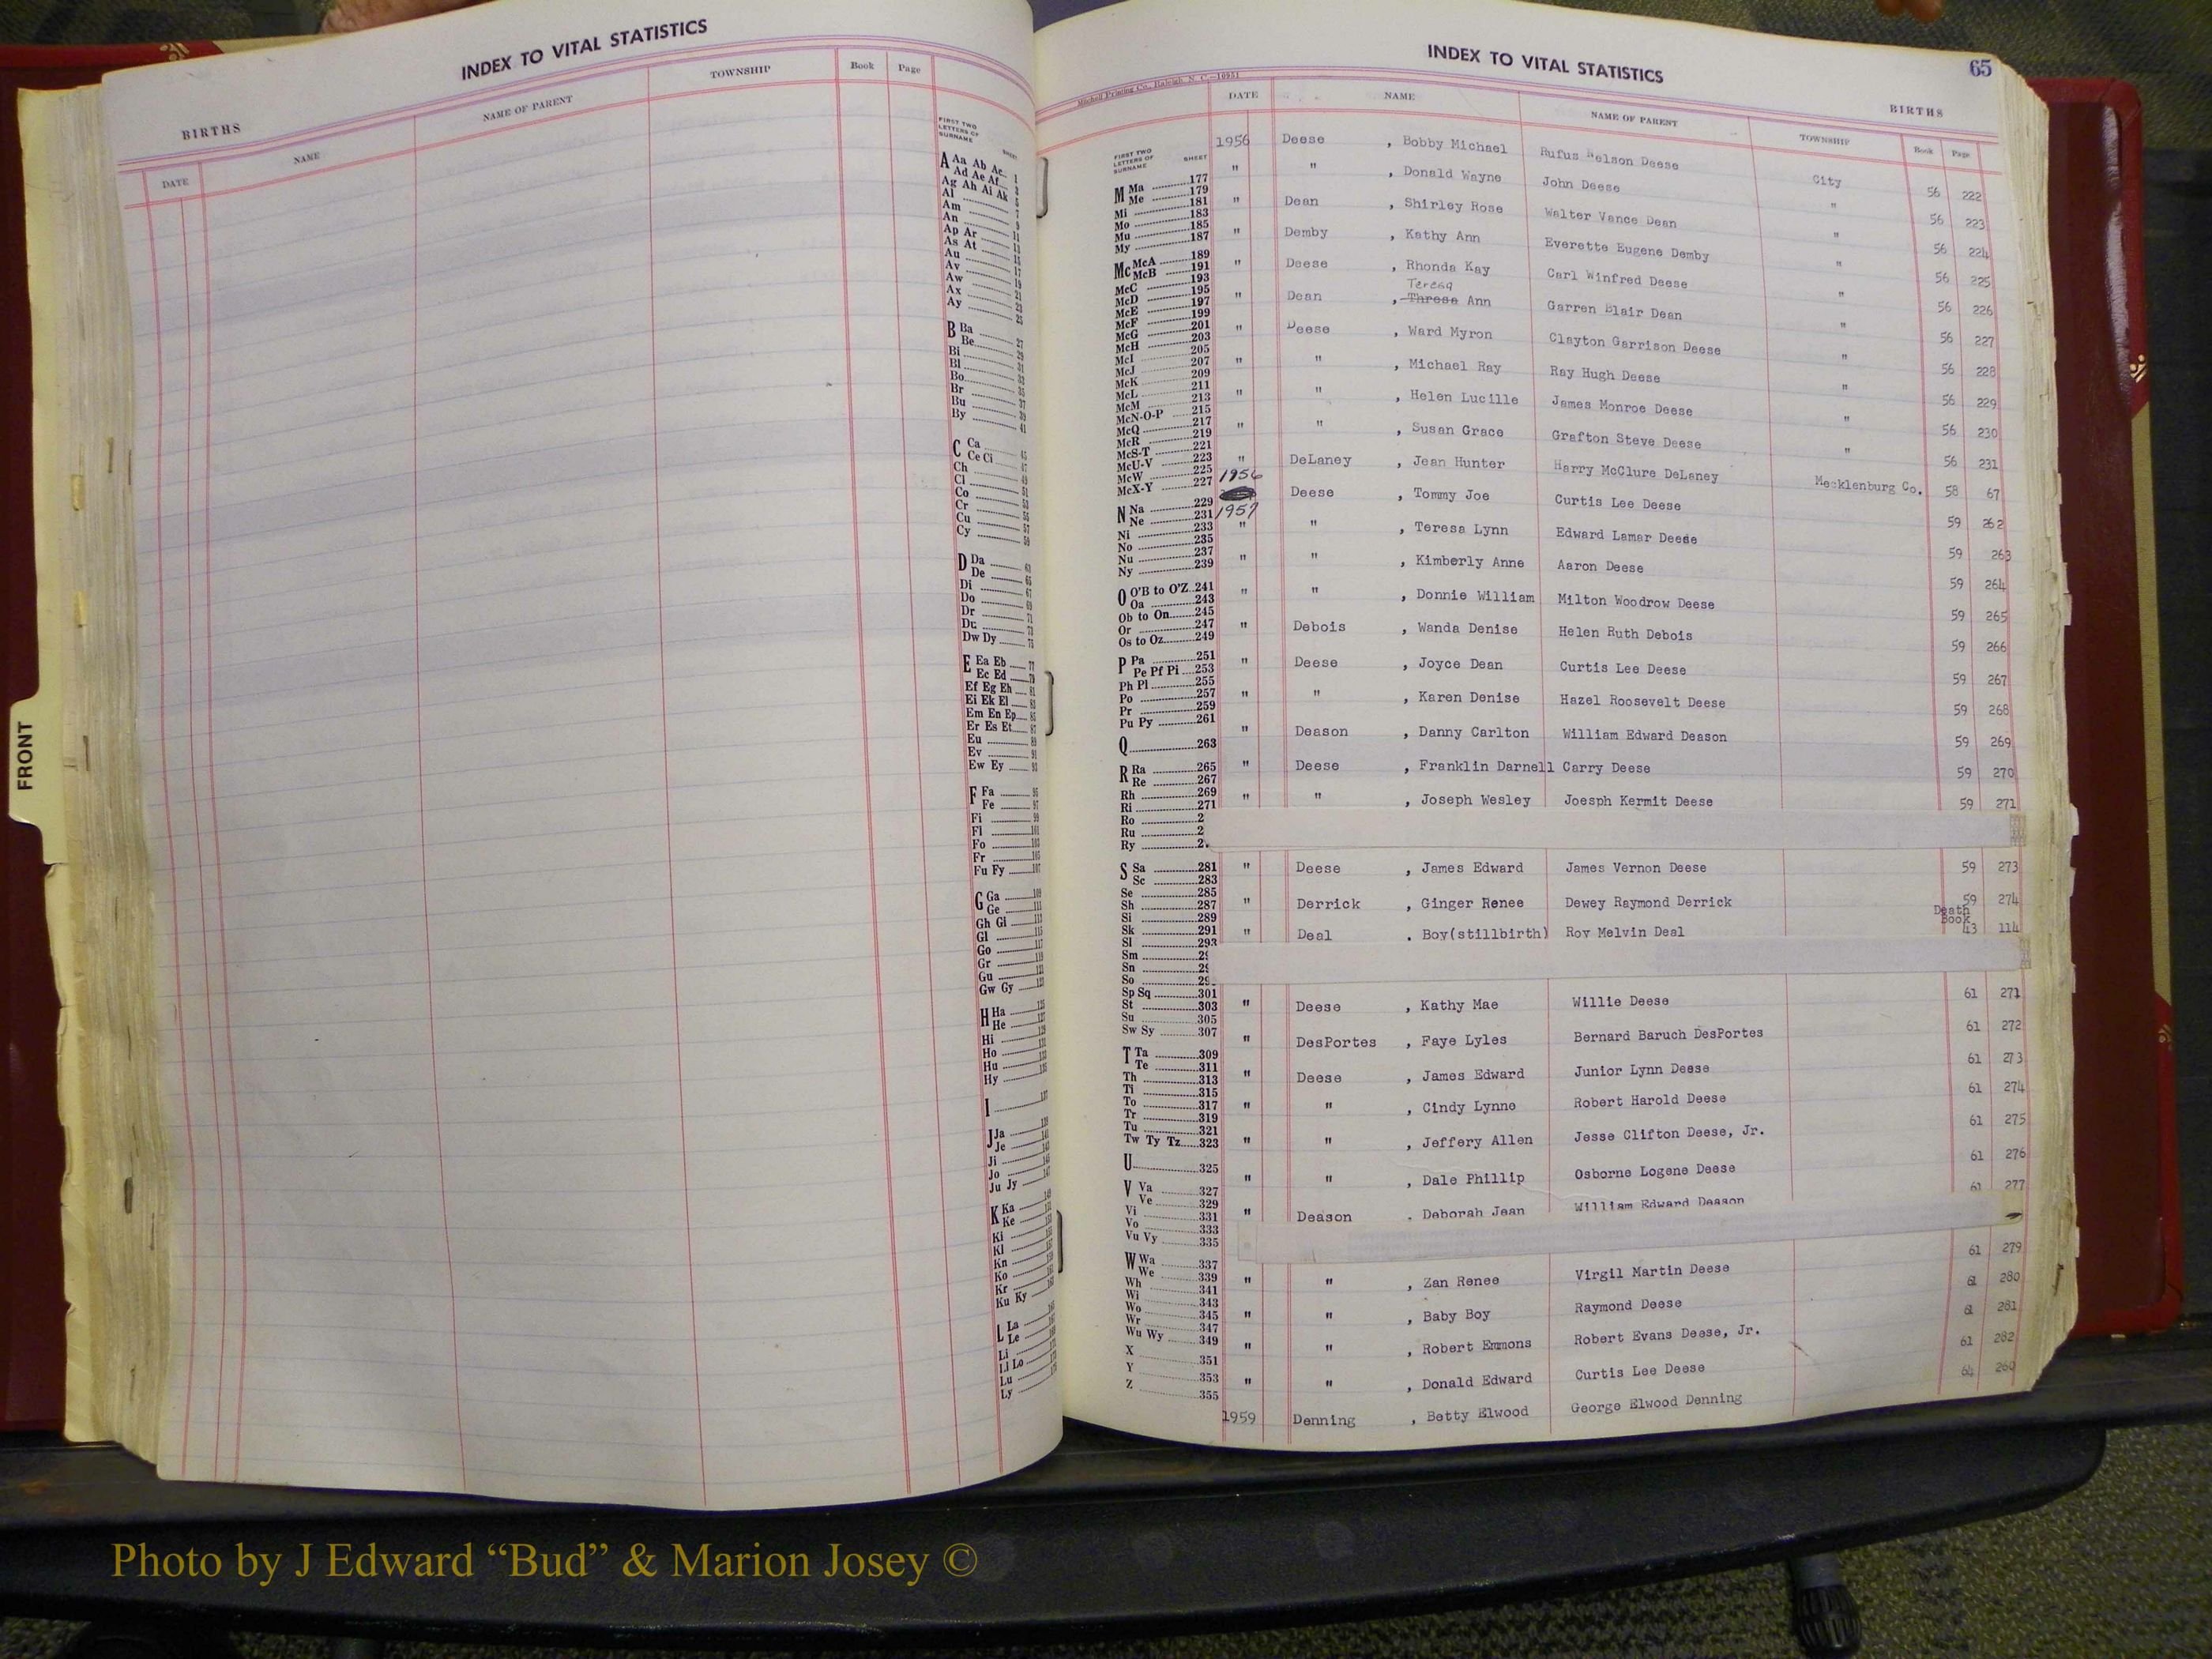 INDEX TO VITAL STATISTICS
BIRTHS
NAME OF PARENT
TOWNSHIP
Book
Page
DATE
NAME
FIRST TWO LETTERS OF SURNAME
SHEET
A Aa Ab Ac
Ad Ae Af
Ag Ah Ai Ak
Al
Am
An
Ap Ar
As At
Au
Av
Aw
Ax
Ay
B Ba
Be
Bi
Bl
Bo
Br
Bu
By 41
C Ca
Ce Ci
Ch
Cl
Co
Cr
Cu
Cy
D Da 63
De 65
Di 67
Do 69
Dr 71
Du
Dw Dy
E Ea Eb
Ec Ed
Ef Eg Eh
Ei Ek El
Em En Ep
Er Es Et
Eu
Ev
Ew Ey
F Fa
Fe
Fi
Fl
Fo
Fr
Fu Fy
G Ga
Ge
Gh Gi
Gl
Go
Gr
Gu
Gw Gy
H Ha
He
Hi
Ho
Hu
Hy
I
J Ja
Je
Ji
Jo
Ju Jy
K Ka
Ke
Ki
Kl
Kn
Ko
Kr
Ku Ky
L La
Le
Li
Ll Lo
Lu
Ly
FRONT
INDEX TO VITAL STATISTICS
65
Mitchell Printing Co., Raleigh, N. C.—10951
BIRTHS
DATE NAME NAME OF PARENT TOWNSHIP Book Page
FIRST TWO LETTERS OF SURNAME
SHEET
M Ma 177
Me 179
Mi 181
Mo 183
Mu 185
My 187
Mc McA 189
McB 191
McC 193
McD 195
McE 197
McF 199
McG 201
McH 203
McI 205
McJ 207
McK 209
McL 211
McM 213
McN-O-P 215
McQ 217
McR 219
McS-T 221
McU-V 223
McW 225
McX-Y 227
N Na 229
Ne 231
Ni 233
No 235
Nu 237
Ny 239
O O'B to O'Z 241
Oa 243
Ob to On 245
Or 247
Os to Oz 249
P Pa 251
Pe Pf Pi 253
Ph Pl 255
Po 257
Pr 259
Pu Py 261
Q 263
R Ra 265
Re 267
Rh 269
Ri 271
Ro 2
Ru 2
Ry 2
S Sa 281
Sc 283
Se 285
Sh 287
Si 289
Sk 291
Sl 293
Sm 29
Sn 29
So 29
Sp Sq 301
St 303
Su 305
Sw Sy 307
T Ta 309
Te 311
Th 313
Ti 315
To 317
Tr 319
Tu 321
Tw Ty Tz 323
U 325
V Va 327
Ve 329
Vi 331
Vo 333
Vu Vy 335
W Wa 337
We 339
Wh 341
Wi 343
Wo 345
Wr 347
Wu Wy 349
X 351
Y 353
Z 355
1956 Deese , Bobby Michael Rufus Nelson Deese City 56 222
" " , Donald Wayne John Deese " 56 223
" Dean , Shirley Rose Walter Vance Dean " 56 224
" Demby , Kathy Ann Everette Eugene Demby " 56 225
" Deese , Rhonda Kay Carl Winfred Deese " 56 226
Teresa
" Dean , Threse Ann Garren Blair Dean " 56 227
" Deese , Ward Myron Clayton Garrison Deese " 56 228
" " , Michael Ray Ray Hugh Deese " 56 229
" " , Helen Lucille James Monroe Deese " 56 230
" " , Susan Grace Grafton Steve Deese " 56 231
" DeLaney , Jean Hunter Harry McClure DeLaney Mecklenburg Co. 58 67
1956 Deese , Tommy Joe Curtis Lee Deese 59 262
1957
" " , Teresa Lynn Edward Lamar Deese 59 263
" " , Kimberly Anne Aaron Deese 59 264
" " , Donnie William Milton Woodrow Deese 59 265
" Debois , Wanda Denise Helen Ruth Debois 59 266
" Deese , Joyce Dean Curtis Lee Deese 59 267
" " , Karen Denise Hazel Roosevelt Deese 59 268
" Deason , Danny Carlton William Edward Deason 59 269
" Deese , Franklin Darnell Carry Deese 59 270
" " , Joseph Wesley Joesph Kermit Deese 59 271
" Deese , James Edward James Vernon Deese 59 273
" Derrick , Ginger Renee Dewey Raymond Derrick 59 274
Death Book
" Deal , Boy(stillbirth) Roy Melvin Deal 43 114
" Deese , Kathy Mae Willie Deese 61 271
" DesPortes , Faye Lyles Bernard Baruch DesPortes 61 272
" Deese , James Edward Junior Lynn Deese 61 273
" " , Cindy Lynne Robert Harold Deese 61 274
" " , Jeffery Allen Jesse Clifton Deese, Jr. 61 275
" " , Dale Phillip Osborne Logene Deese 61 276
" Deason , Deborah Jean William Edward Deason 61 277
" " , Zan Renee Virgil Martin Deese 61 279
" " , Baby Boy Raymond Deese 61 280
" " , Robert Emmons Robert Evans Deese, Jr. 61 281
" " , Donald Edward Curtis Lee Deese 61 282
1959 Denning , Betty Elwood George Elwood Denning 64 260
Photo by J Edward “Bud” & Marion Josey ©